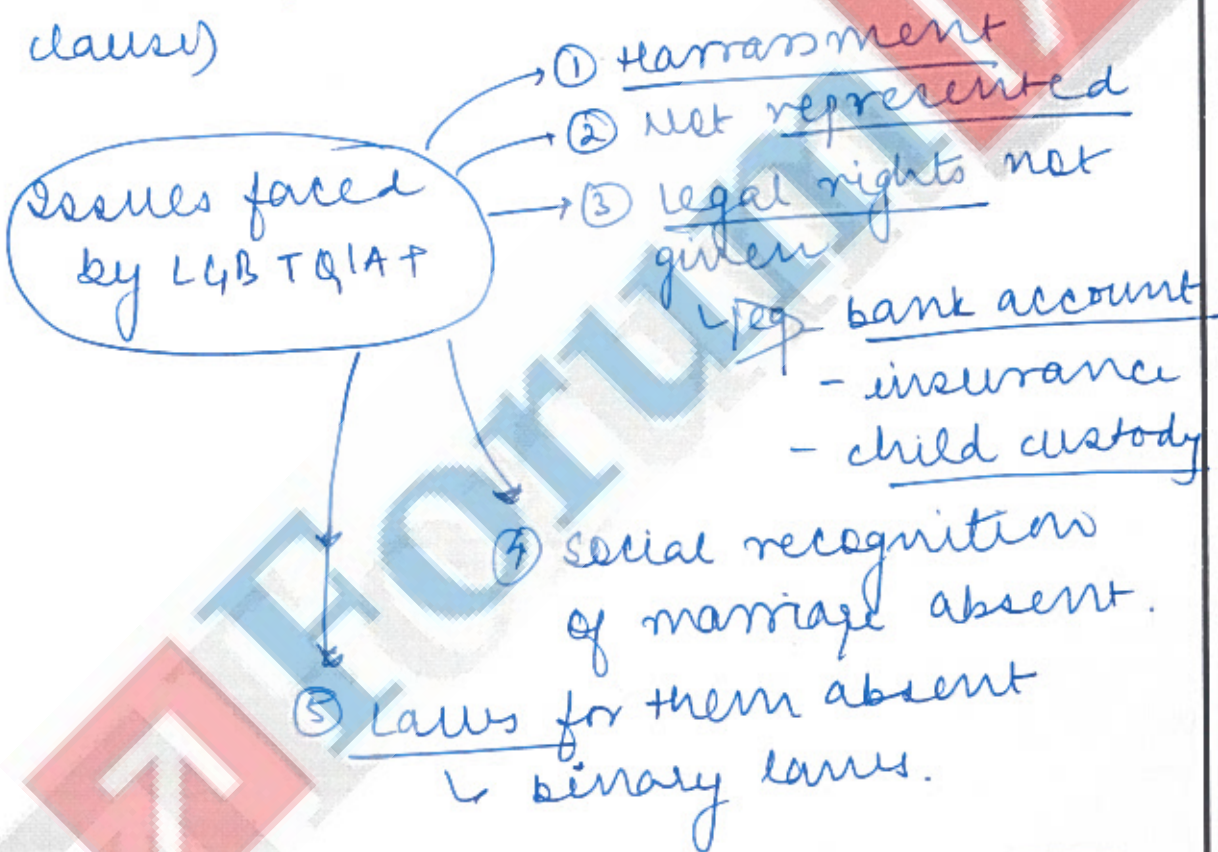 clause)
Issues faced
by LGBTQIA+
① Harrassment
② Not represented
③ legal rights not
given
↳ eg - bank account
- insurance
- child custody
④ social recognition
of marriage absent.
⑤ Laws for them absent
↳ binary laws.
Forum